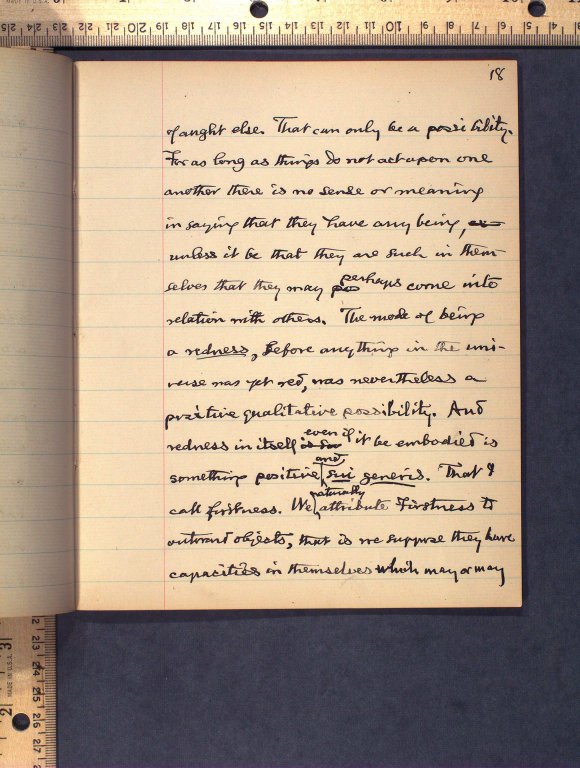 18
of aught else. That can only be a possibility.
For as long as things do not act upon one
another there is no sense or meaning
in saying that they have any being,
unless it be that they are such in them-
selves that they may perhaps come into
relation with others. The mode of being
a redness, before anything in the uni-
verse was yet red, was nevertheless a
positive qualitative possibility. And
redness in itself even if it be embodied is
something positive and sui generis. That I
call firstness. We naturally attribute Firstness to
outward objects, that is we suppose they have
capacities in themselves which may or may